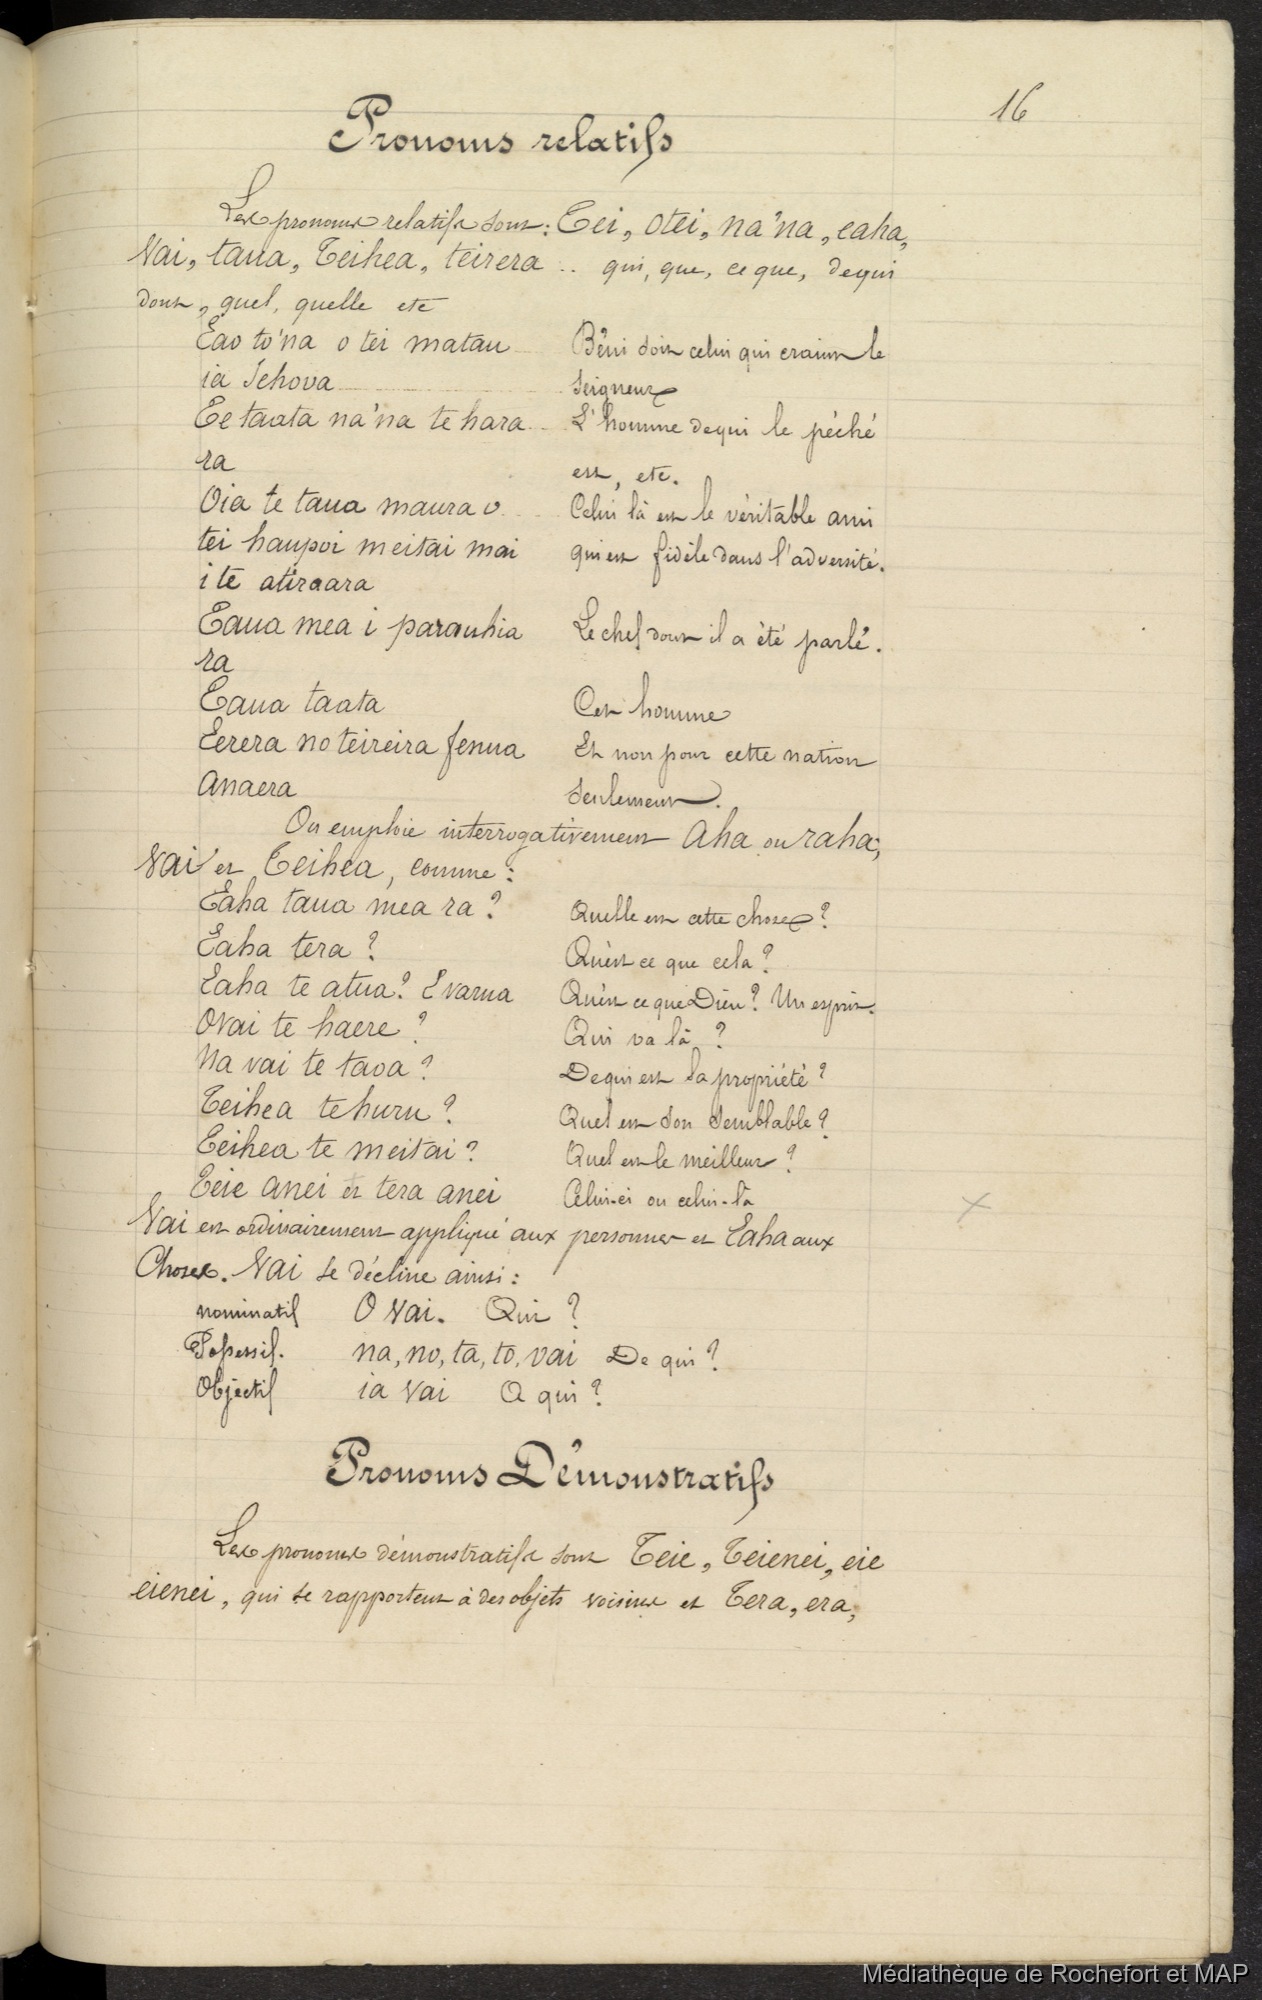 16
Pronoms relatifs
Les pronoms relatifs sont: Tei, otei, na'na, eaha,
Vai, taua, Teihea, teirera .. qui, que, ce que, de qui
dont, quel, quelle etc
Eao to'na o tei matau Béni soit celui qui craint le
ia Iehova Seigneur
Te taata na'na te hara L'homme de qui le péché
ra est, etc.
Oia te taua maura o Celui là est le véritable ami
tei haupoi meitai mai qui est fidèle dans l'adversité.
i te atiraara
Taua mea i parauhia Le chef dont il a été parlé.
ra
Taua taata Cet homme
Eerera no teireira fenua Et non pour cette nation
anaera seulement.
On emploie interrogativement Aha ou raha;
Vai et Teihea, comme:
Eaha taua mea ra? Quelle est cette chose?
Eaha tera? Qu'est ce que cela?
Eaha te atua? E varua Qu'est ce que Dieu? Un esprit.
Ovai te haere? Qui va là?
Na vai te taoa? De qui est la propriété?
Teihea te huru? Quel est son semblable?
Teihea te meitai? Quel est le meilleur?
Teie anei et tera anei Celui-ci ou celui-là
Vai est ordinairement appliqué aux personnes et Eaha aux
Choses. Vai se décline ainsi:
nominatif O Vai. Qui?
Possessif. na, no, ta, to, vai De qui?
Objectif ia Vai A qui?
Pronoms Démonstratifs
Les pronoms démonstratifs sont Teie, Teienei, eie
eienei, qui se rapportent à des objets voisins et Tera, era,
Médiathèque de Rochefort et MAP